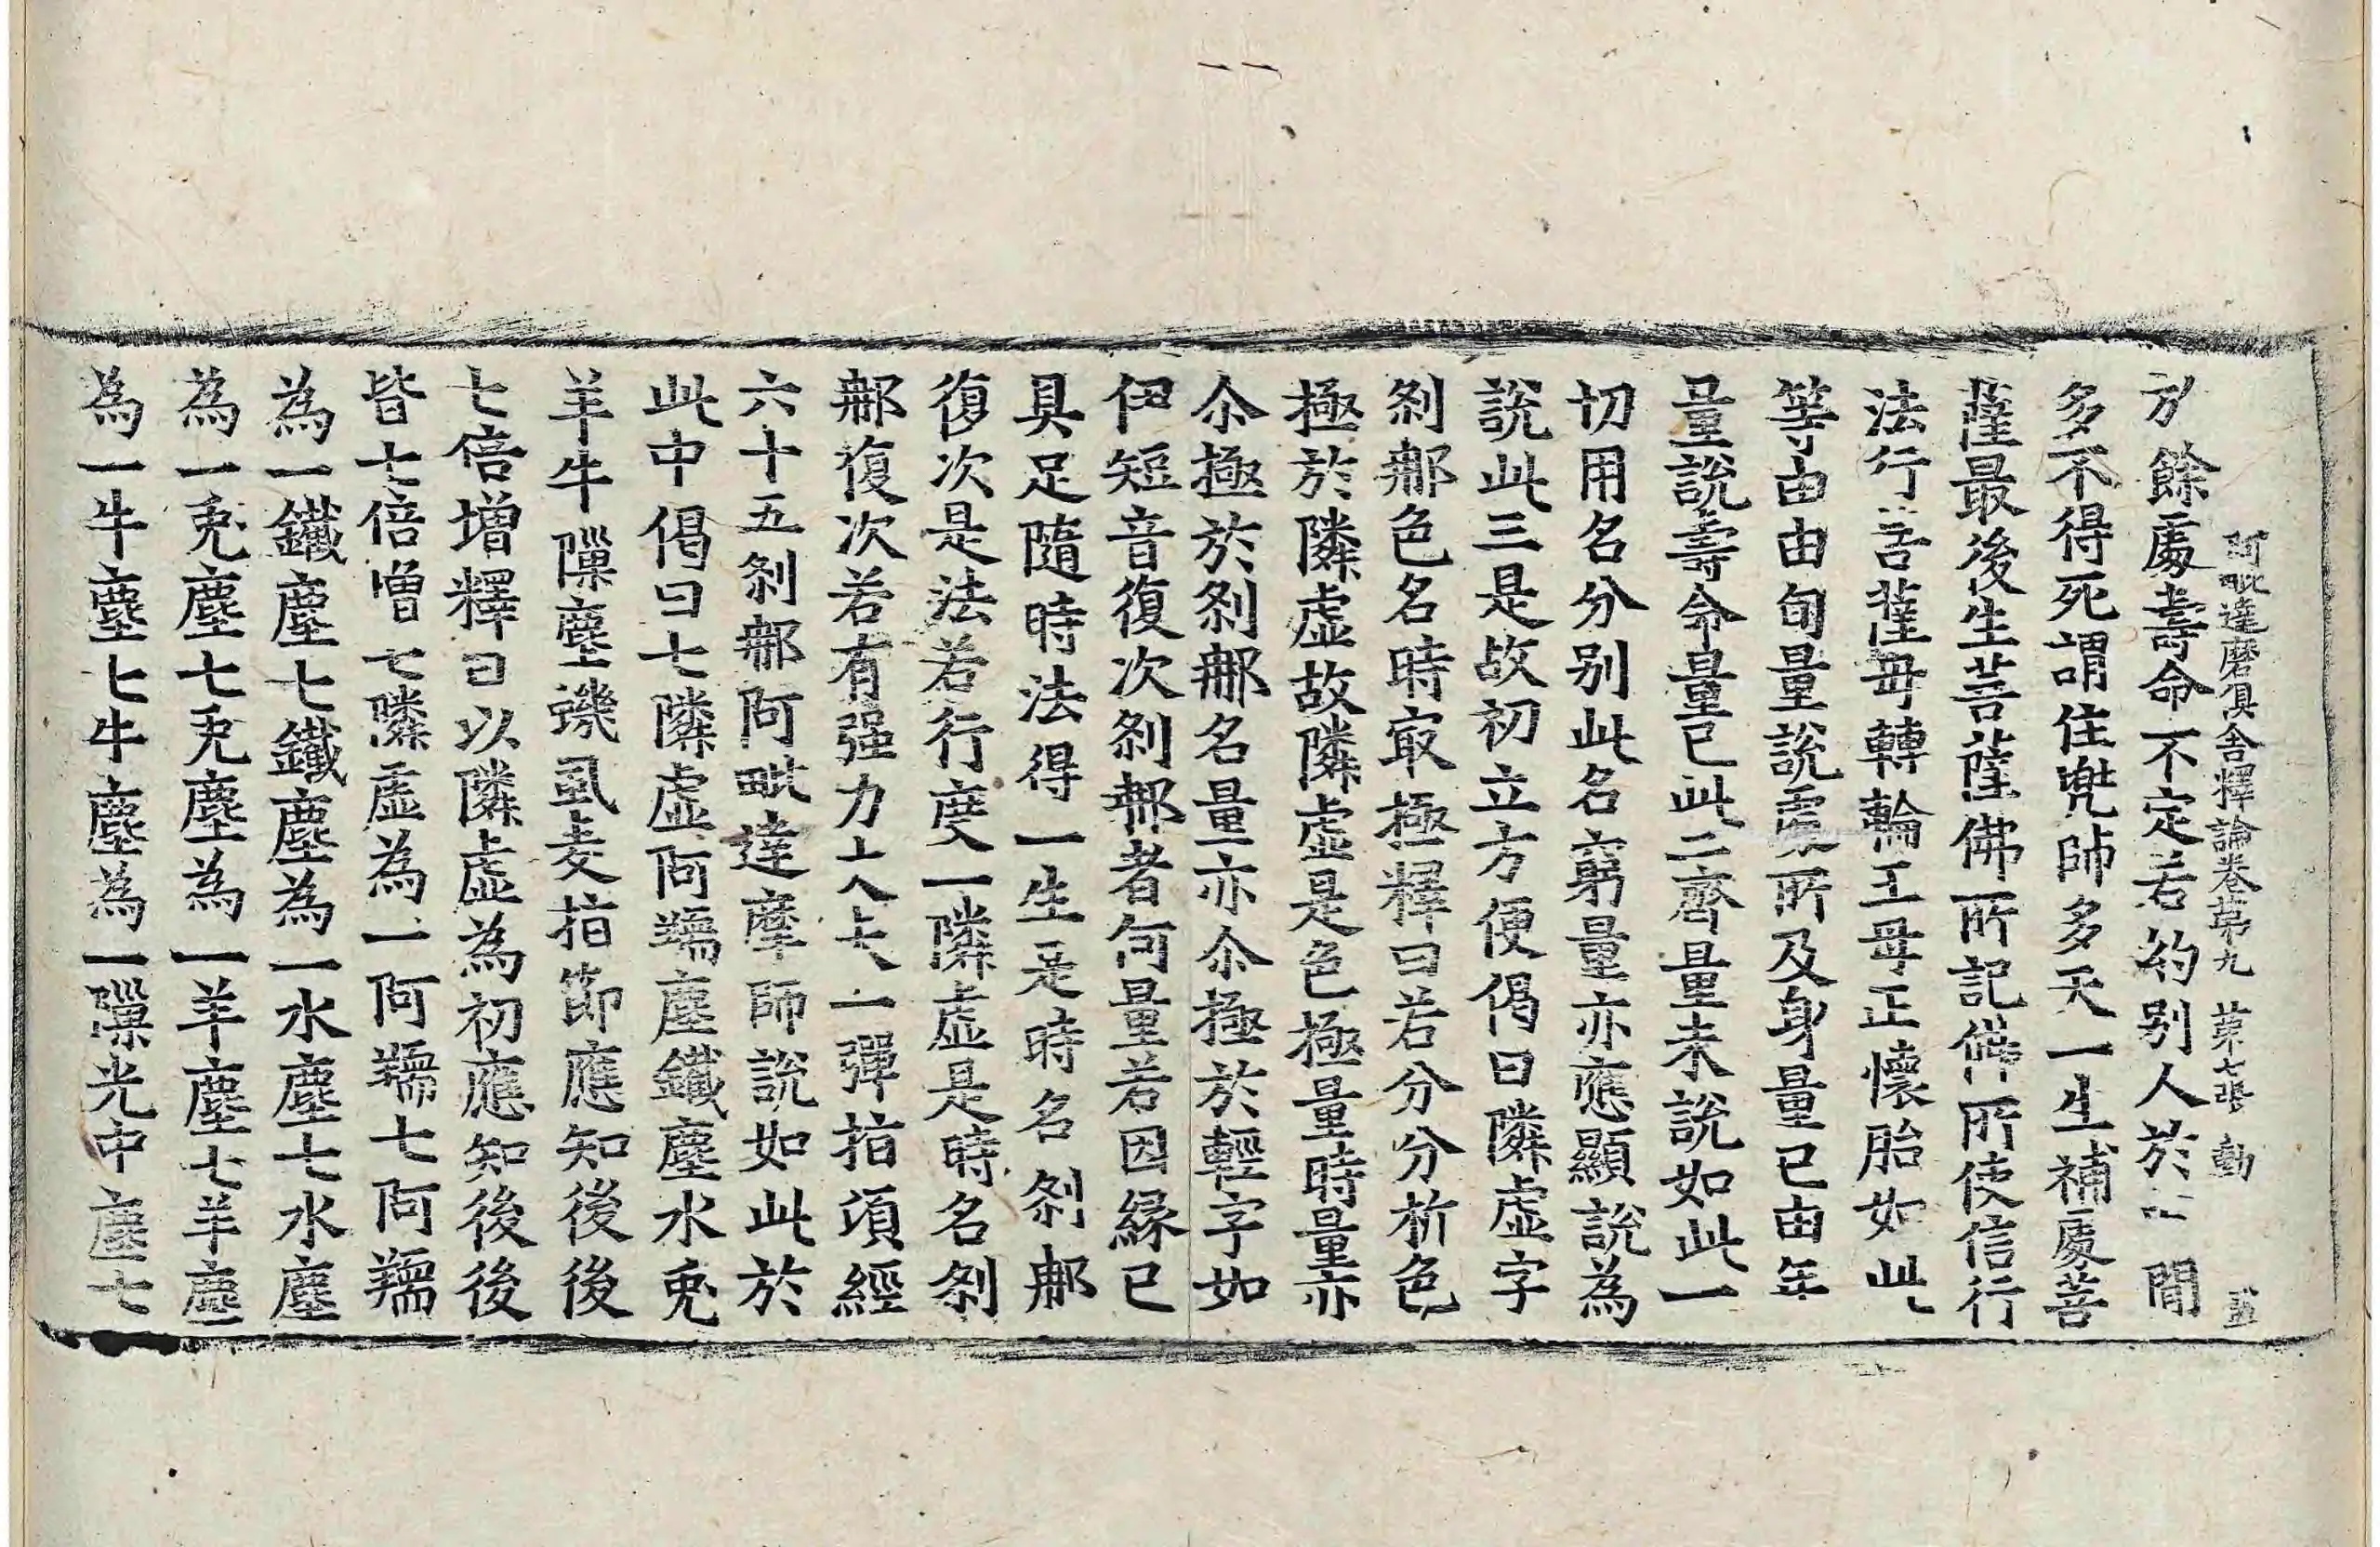 阿毗達磨俱舍釋論卷第九 第七張 動
方餘處壽命不定若約别人於 閒
多不得死謂住兠師多天一生補處菩
薩最後生菩薩佛所記佛所使信行
法行菩薩母轉輪王母正懷胎如此
等由由旬量說處所及身量已由年
量說壽命量已此二齊量未說如此一
切用名分别此名窮量亦應顯說為
說此三是故初立方便偈曰隣虛字
剎那色名時㝡極釋曰若分分析色
極於隣虛故隣虛是色極量時量亦
尒極於剎那名量亦尒極於輕字如
伊短音復次剎那者何量若因緣已
具足隨時法得一生是時名剎那
復次是法若行度一隣虛是時名剎
那復次若有强力士人大一彈指項經
六十五剎那阿毗達摩師說如此於
此中偈曰七隣虛阿𦆯塵鐵塵水兎
羊牛隙塵蟣虱麦指節應知後後
七倍增釋曰以隣虛為初應知後後
皆七倍增七隣虛為一阿𦆯七阿𦆯
為一鐵塵七鐵塵為一水塵七水塵
為一兎塵七兎塵為一羊塵七羊塵
為一牛塵七牛塵為一隙光中塵七